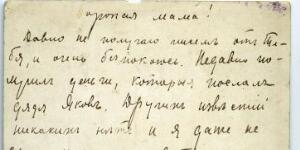 орогая мама!
Давно не получаю писемъ отъ Те-
бя, и очень безпокоюсь. Недавно по-
лучилъ деньги, которыя послалъ
дядя Яковъ. Другихъ извѣстій
никакихъ нѣтъ и я даже не